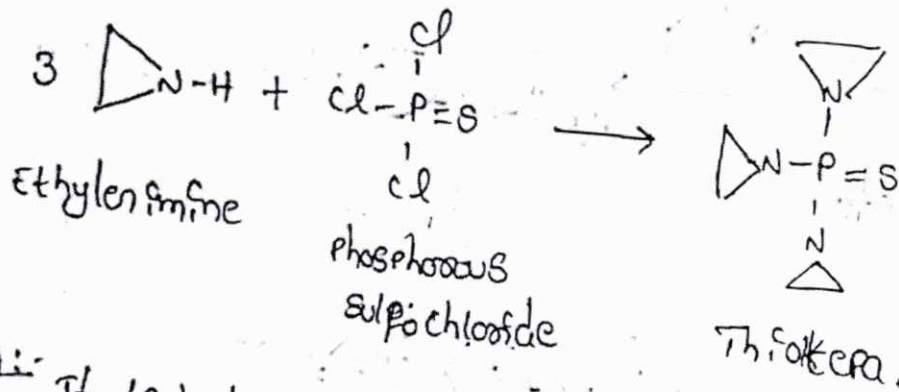 3 N-H + Cl-P≡S Cl Cl → N-P=S N N
Ethylenimine
phosphorous
sulpho chloride
Thiotepa.